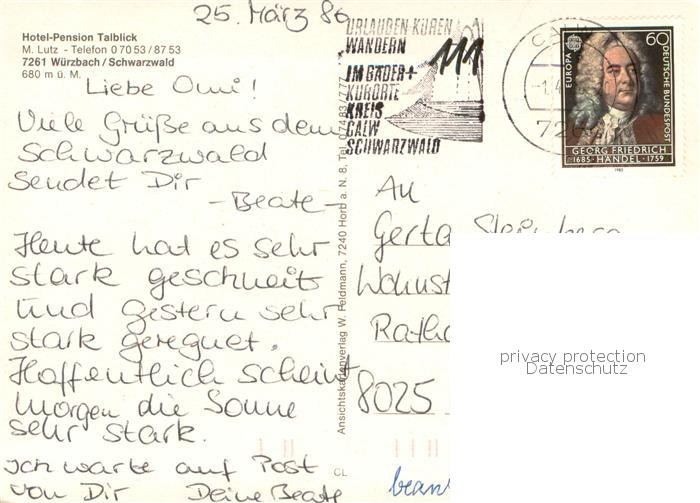 25. März 86
Hotel-Pension Talblick
M. Lutz - Telefon 0 70 53 / 87 53
7261 Würzbach / Schwarzwald
680 m ü. M.
Liebe Omi!
Viele Grüße aus dem
Schwarzwald
sendet Dir
-Beate-
Heute hat es sehr
stark geschneit
und gestern sehr
stark geregnet.
Hoffentlich scheint
morgen die Sonne
sehr stark.
Ich warte auf Post
von Dir Deine Beate
Ansichtskartenverlag W. Feldmann, 7240 Horb a. N. 8, Tel. 07483/777
CL
URLAUBEN KUREN
WANDERN
IM BÄDER+
KURORTE
KREIS
CALW
SCHWARZWALD
CALW
726
EUROPA
60
DEUTSCHE BUNDESPOST
GEORG FRIEDRICH
1685 · HÄNDEL · 1759
1985
An
Gerta
Wohnst
Ratha
8025
bean
privacy protection
Datenschutz